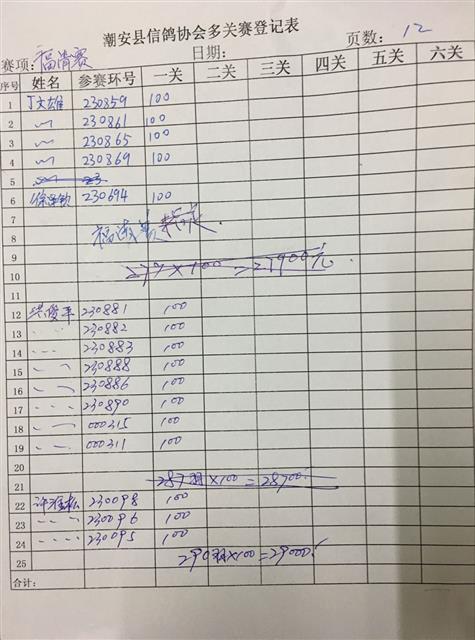 潮安县信鸽协会多关赛登记表
赛项: 福清赛 日期: 页数: 12
序号 姓名 参赛环号 一关 二关 三关 四关 五关 六关
1 丁文雄 230859 100
2 〃 230861 100
3 〃 230865 100
4 〃 230869 100
5
6 230694 100
7
8 福清赛
9
10 277×100=27900元
11
12 洪俊平 230881 100
13 〃 230882 100
14 〃 230883 100
15 〃 230888 100
16 〃 230886 100
17 〃 230890 100
18 〃 000315 100
19 〃 000311 100
20
21 287羽×100=28700
22 230098 100
23 〃 230096 100
24 〃 230095 100
25 290羽×100=29000
合计: